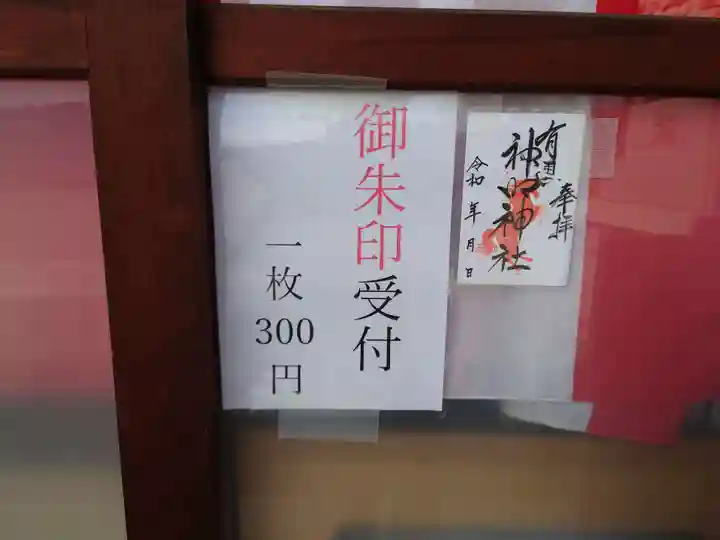 御朱印受付
一枚
300
円
奉拝
神社
令和 年 月 日